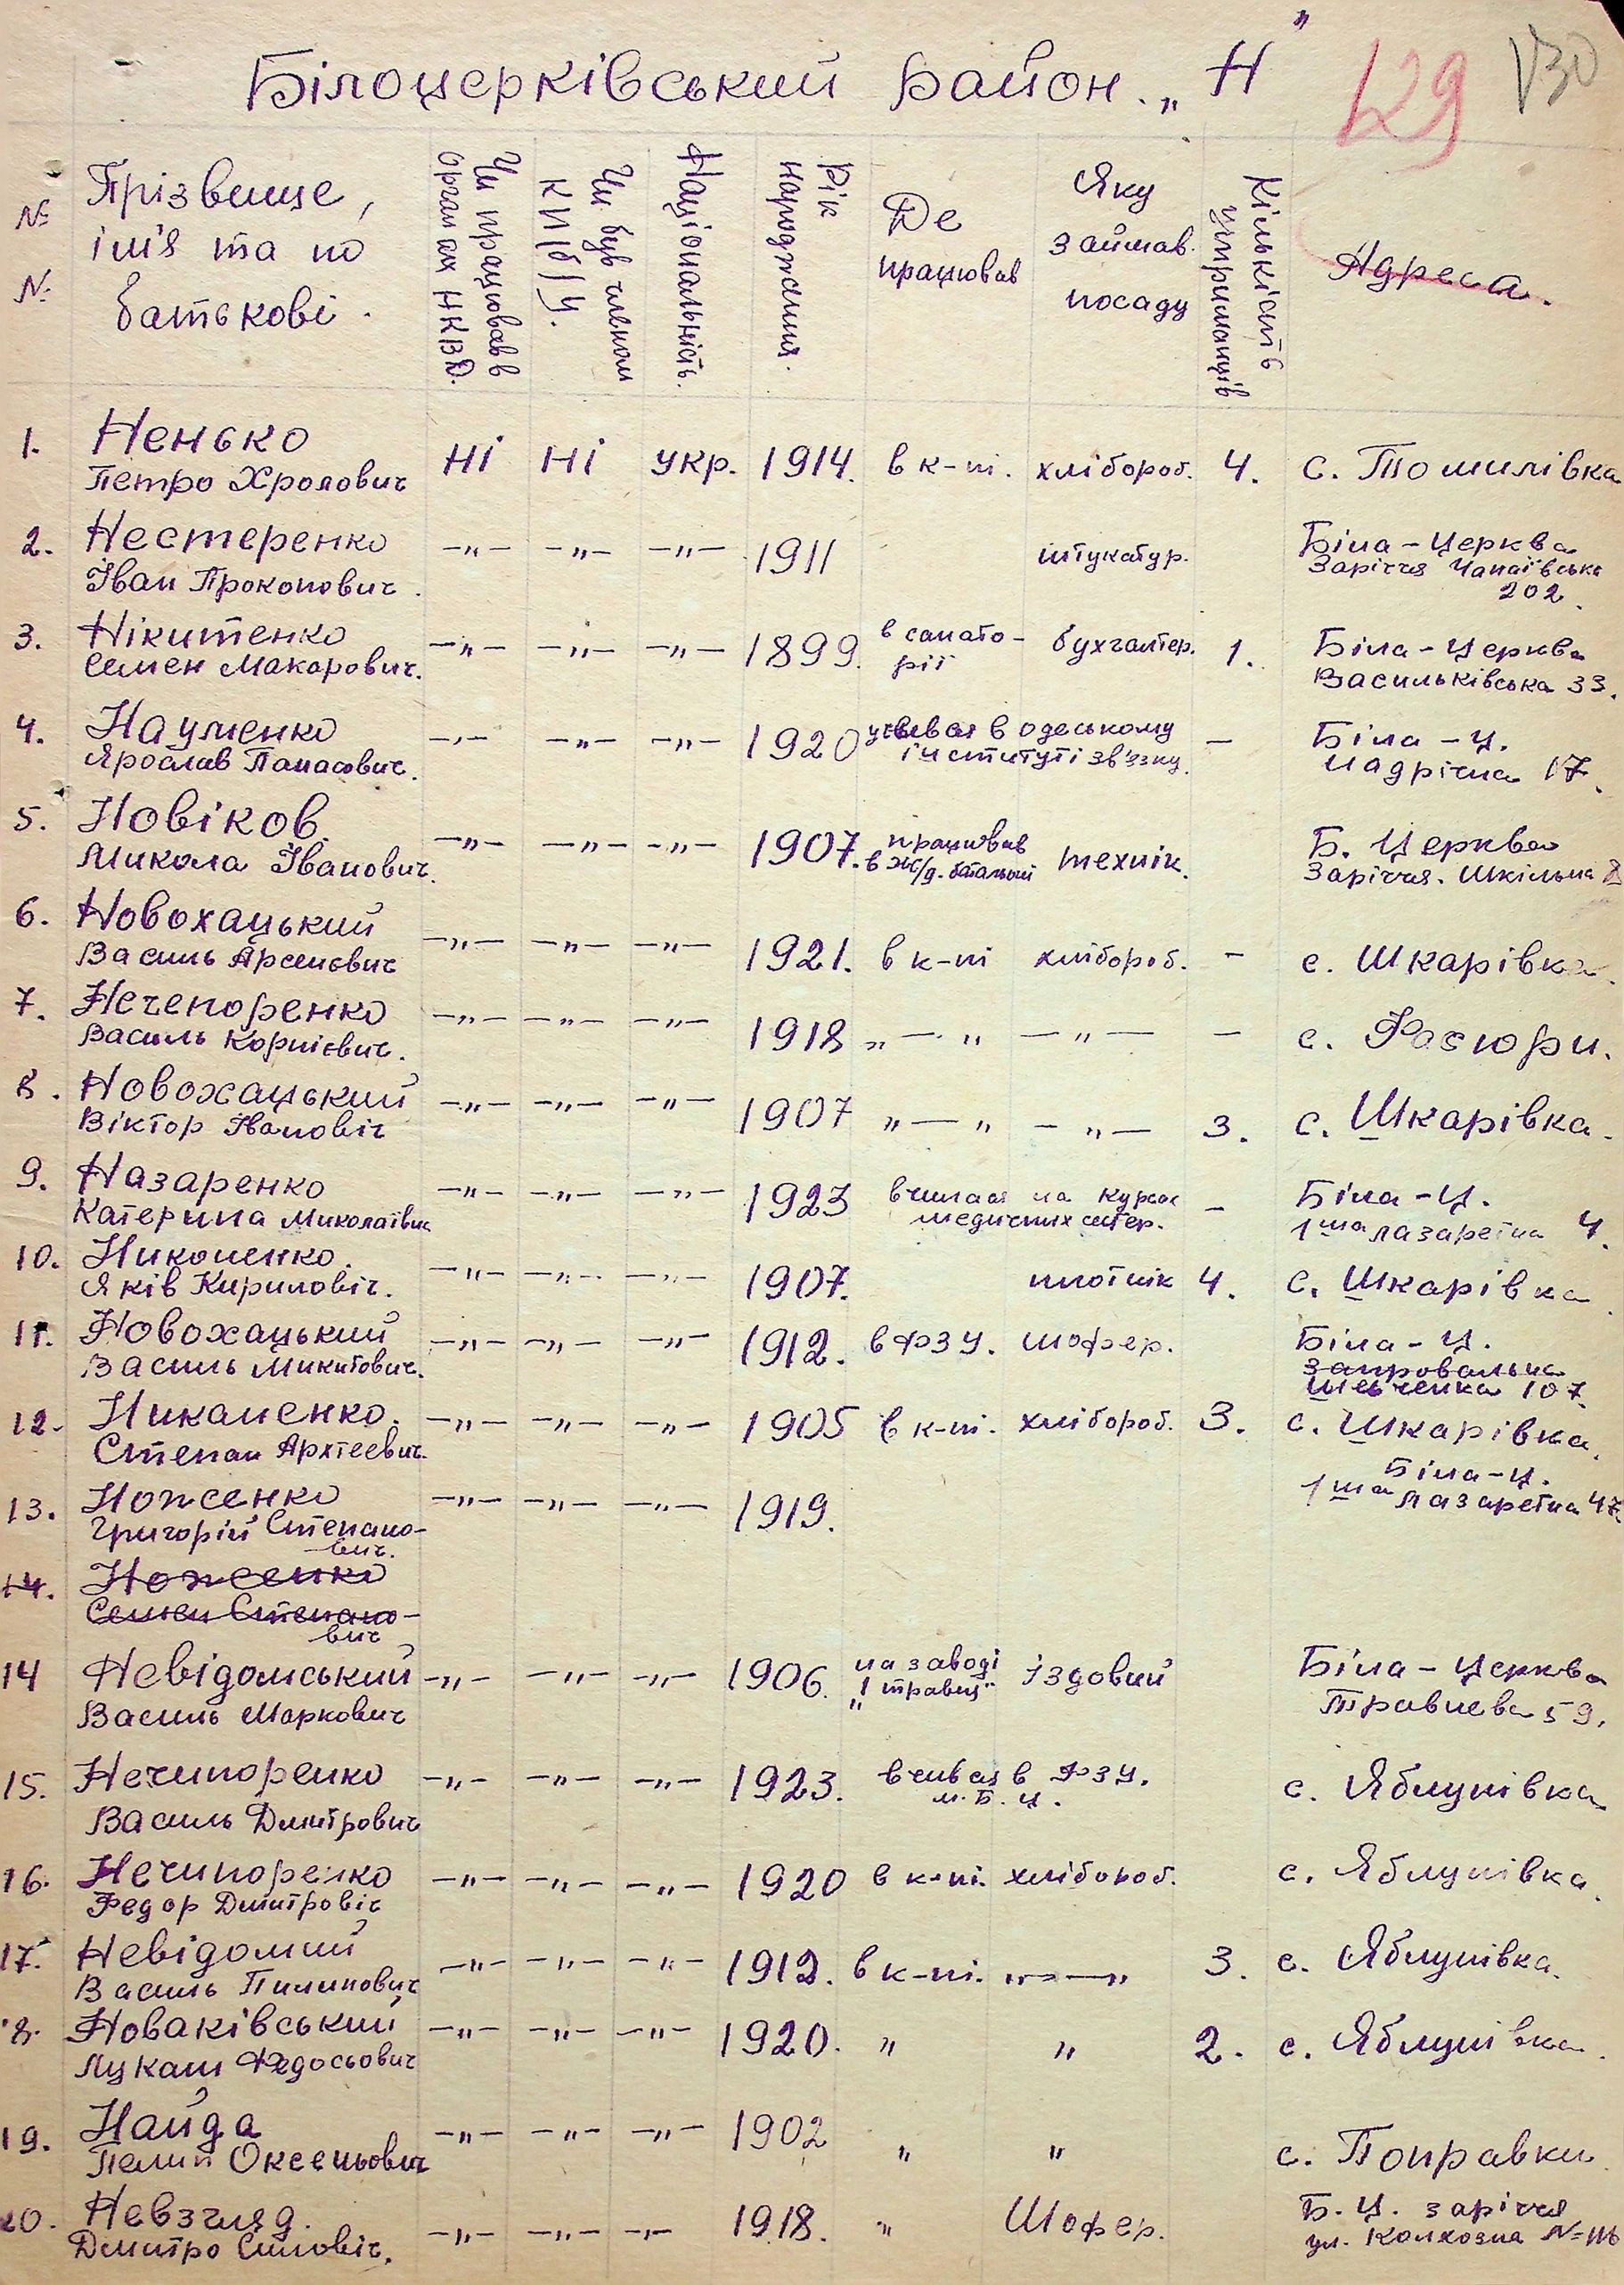 Білоцерківський район. „Н"
129 130
№ №
Прізвище, ім'я та по батькові.
Чи працював в органах НКВД.
Чи був членом КП(б)У.
Національність.
Рік народження.
Де працював
Яку займав. посаду
Кількість утриманців
Адреса.
1. Ненько Ні Ні укр. 1914. в к-пі. хлібороб. 4. с. Томилівка
Петро Хролович
2. Нестеренко —„— —„— —„— 1911 штукатур. Біла-Церква
Іван Прокопович. Заріччя Чапаївська
202.
3. Нікитенко —„— —„— —„— 1899. в санато- бухгалтер. 1. Біла-Церква
Семен Макарович. рії Васильківська 33.
4. Науменко —„— —„— —„— 1920 учився в одеському — Біла-Ц.
Ярослав Панасович. інституті зв'язку. Надрічна 17.
5. Новіков. —„— —„— —„— 1907. працював технік. Б. Церква
Микола Іванович. в ж/д. батальоні Заріччя. Шкільна
6. Новохацький —„— —„— —„— 1921. в к-пі хлібороб. — с. Шкарівка.
Василь Арсенович
7. Нечепоренко —„— —„— —„— 1918 „—„ —„— — с. Фастори.
Василь Корнієвич.
8. Новохацький —„— —„— —„— 1907 „—„ —„— 3. с. Шкарівка.
Віктор Івановіч
9. Назаренко —„— —„— —„— 1923 вчилась на курсах — Біла-Ц.
Катерина Миколаївна медичних сестер. 1ша лазаретна 4.
10. Никоненко. —„— —„— —„— 1907. плотнік 4. с. Шкарівка.
Яків Кириловіч.
11. Новохацький —„— —„— —„— 1912. в ФЗУ. шофер. Біла-Ц.
Василь Микитович. Шевченка 107.
12. Никаненко. —„— —„— —„— 1905 в к-пі. хлібороб. 3. с. Шкарівка.
Степан Архтеевич.
13. Ноженко —„— —„— —„— 1919. Біла-Ц.
Григорій Степано- 1ша лазаретна 47.
вич.
14. Ноженко
Семен Степано-
вич
14 Невідомський —„— —„— —„— 1906. на заводі їздовий Біла-Церква
Василь Маркович „1 травня" Травнева 59.
15. Нечипоренко —„— —„— —„— 1923. вчився в ФЗУ. с. Яблунівка
Василь Дмитрович м. Б. Ц.
16. Нечипоренко —„— —„— —„— 1920 в к-пі. хлібороб. с. Яблунівка.
Федор Дмитровіч
17. Невідомий —„— —„— —„— 1912. в к-пі. „—„ 3. с. Яблунівка.
Василь Пилипович
18. Новаківський —„— —„— —„— 1920. „ „ 2. с. Яблунівка.
Лукаш Федосьович
19. Найда —„— —„— —„— 1902 „ „ с. Поправки
Пелип Оксеньович
20. Невзгляд. —„— —„— —„— 1918. „ Шофер. Б.Ц. заріччя
Дмитро Силовіч. ул. Колхозна №